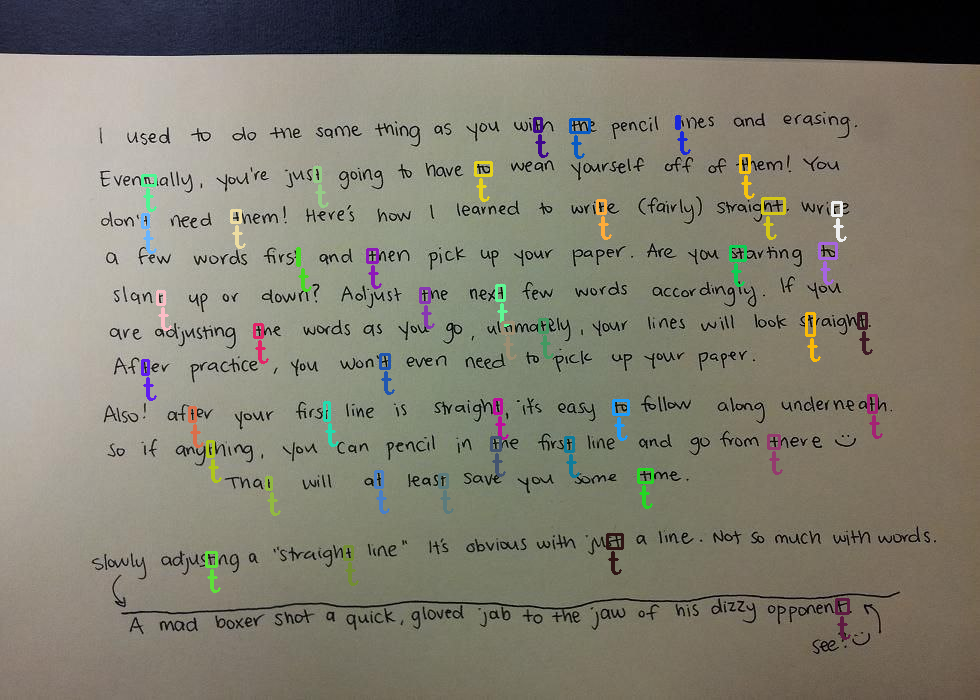 I used to do the same thing as you with the pencil lines and erasing.
Eventually, you're just going to have to wean yourself off of them! You
don't need them! Here's how I learned to write (fairly) straight. Write
a few words first and then pick up your paper. Are you starting to
slant up or down? Adjust the next few words accordingly. If you
are adjusting the words as you go, ultimately, your lines will look straight.
After practice, you won't even need to pick up your paper.
Also! after your first line is straight, it's easy to follow along underneath.
So if anything, you can pencil in the first line and go from there :)
That will at least save you some time.
slowly adjusting a "straight line" It's obvious with just a line. Not so much with words.
A mad boxer shot a quick, gloved jab to the jaw of his dizzy opponent.
see? :)